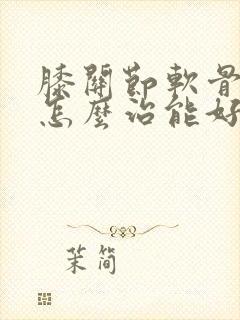 膝關節軟骨
怎麼治能好
茉简